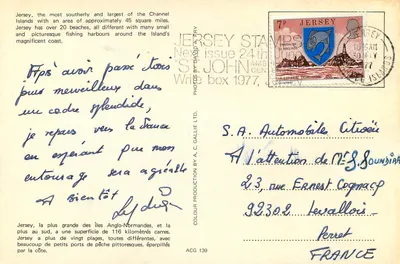 Jersey, the most southerly and largest of the Channel
Islands with an area of approximately 45 square miles.
Jersey has over 20 beaches, all different with many small
and picturesque fishing harbours around the Island's
magnificent coast.
Après avoir passé trois
jours merveilleux dans
un cadre splendide,
je repars vers la France
en espérant que mon
entourage sera agréable
A bientôt
Jersey, la plus grande des Îles Anglo-Normandes, et la
plus au sud, a une superficie de 116 kilomètres carrés.
Jersey a plus de vingt plages, toutes différentes, avec
beaucoup de petits ports de pêche pittoresques, éparpillés
par la côte.
COLOUR PRODUCTION BY A. C. GALLIE LTD.
ACG 139
JERSEY STAMPS
issue 24th
ST. JOHN
box 1977,
JERSEY
7p
JERSEY
S.A. Automobiles Citroën
A l'attention de Mr
23, rue Ernest Cognacq
92302 Levallois-
Perret
FRANCE